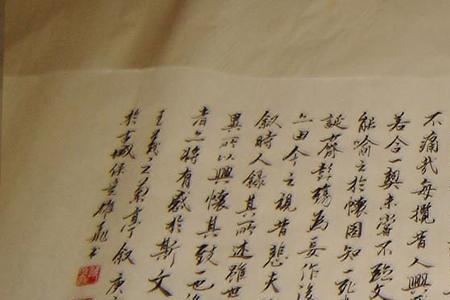 不痛哉每攬昔人興
若合一契未嘗不臨文
能喻之於懷固知一死
誕齊彭殤為妄作後
之由今之視昔悲夫
敘時人錄其所述雖世
異所以興懷其致一也
者亦將有感於斯文
王羲之蘭亭敘 庚
於古城保